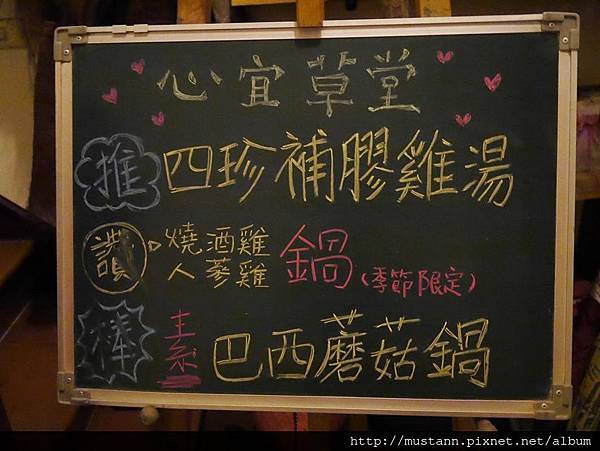 心宜草堂
推 四珍補膠雞湯
讚 燒酒雞
人蔘雞 鍋(季節限定)
棒 素 巴西蘑菇鍋
http://mustann.pixnet.net/album